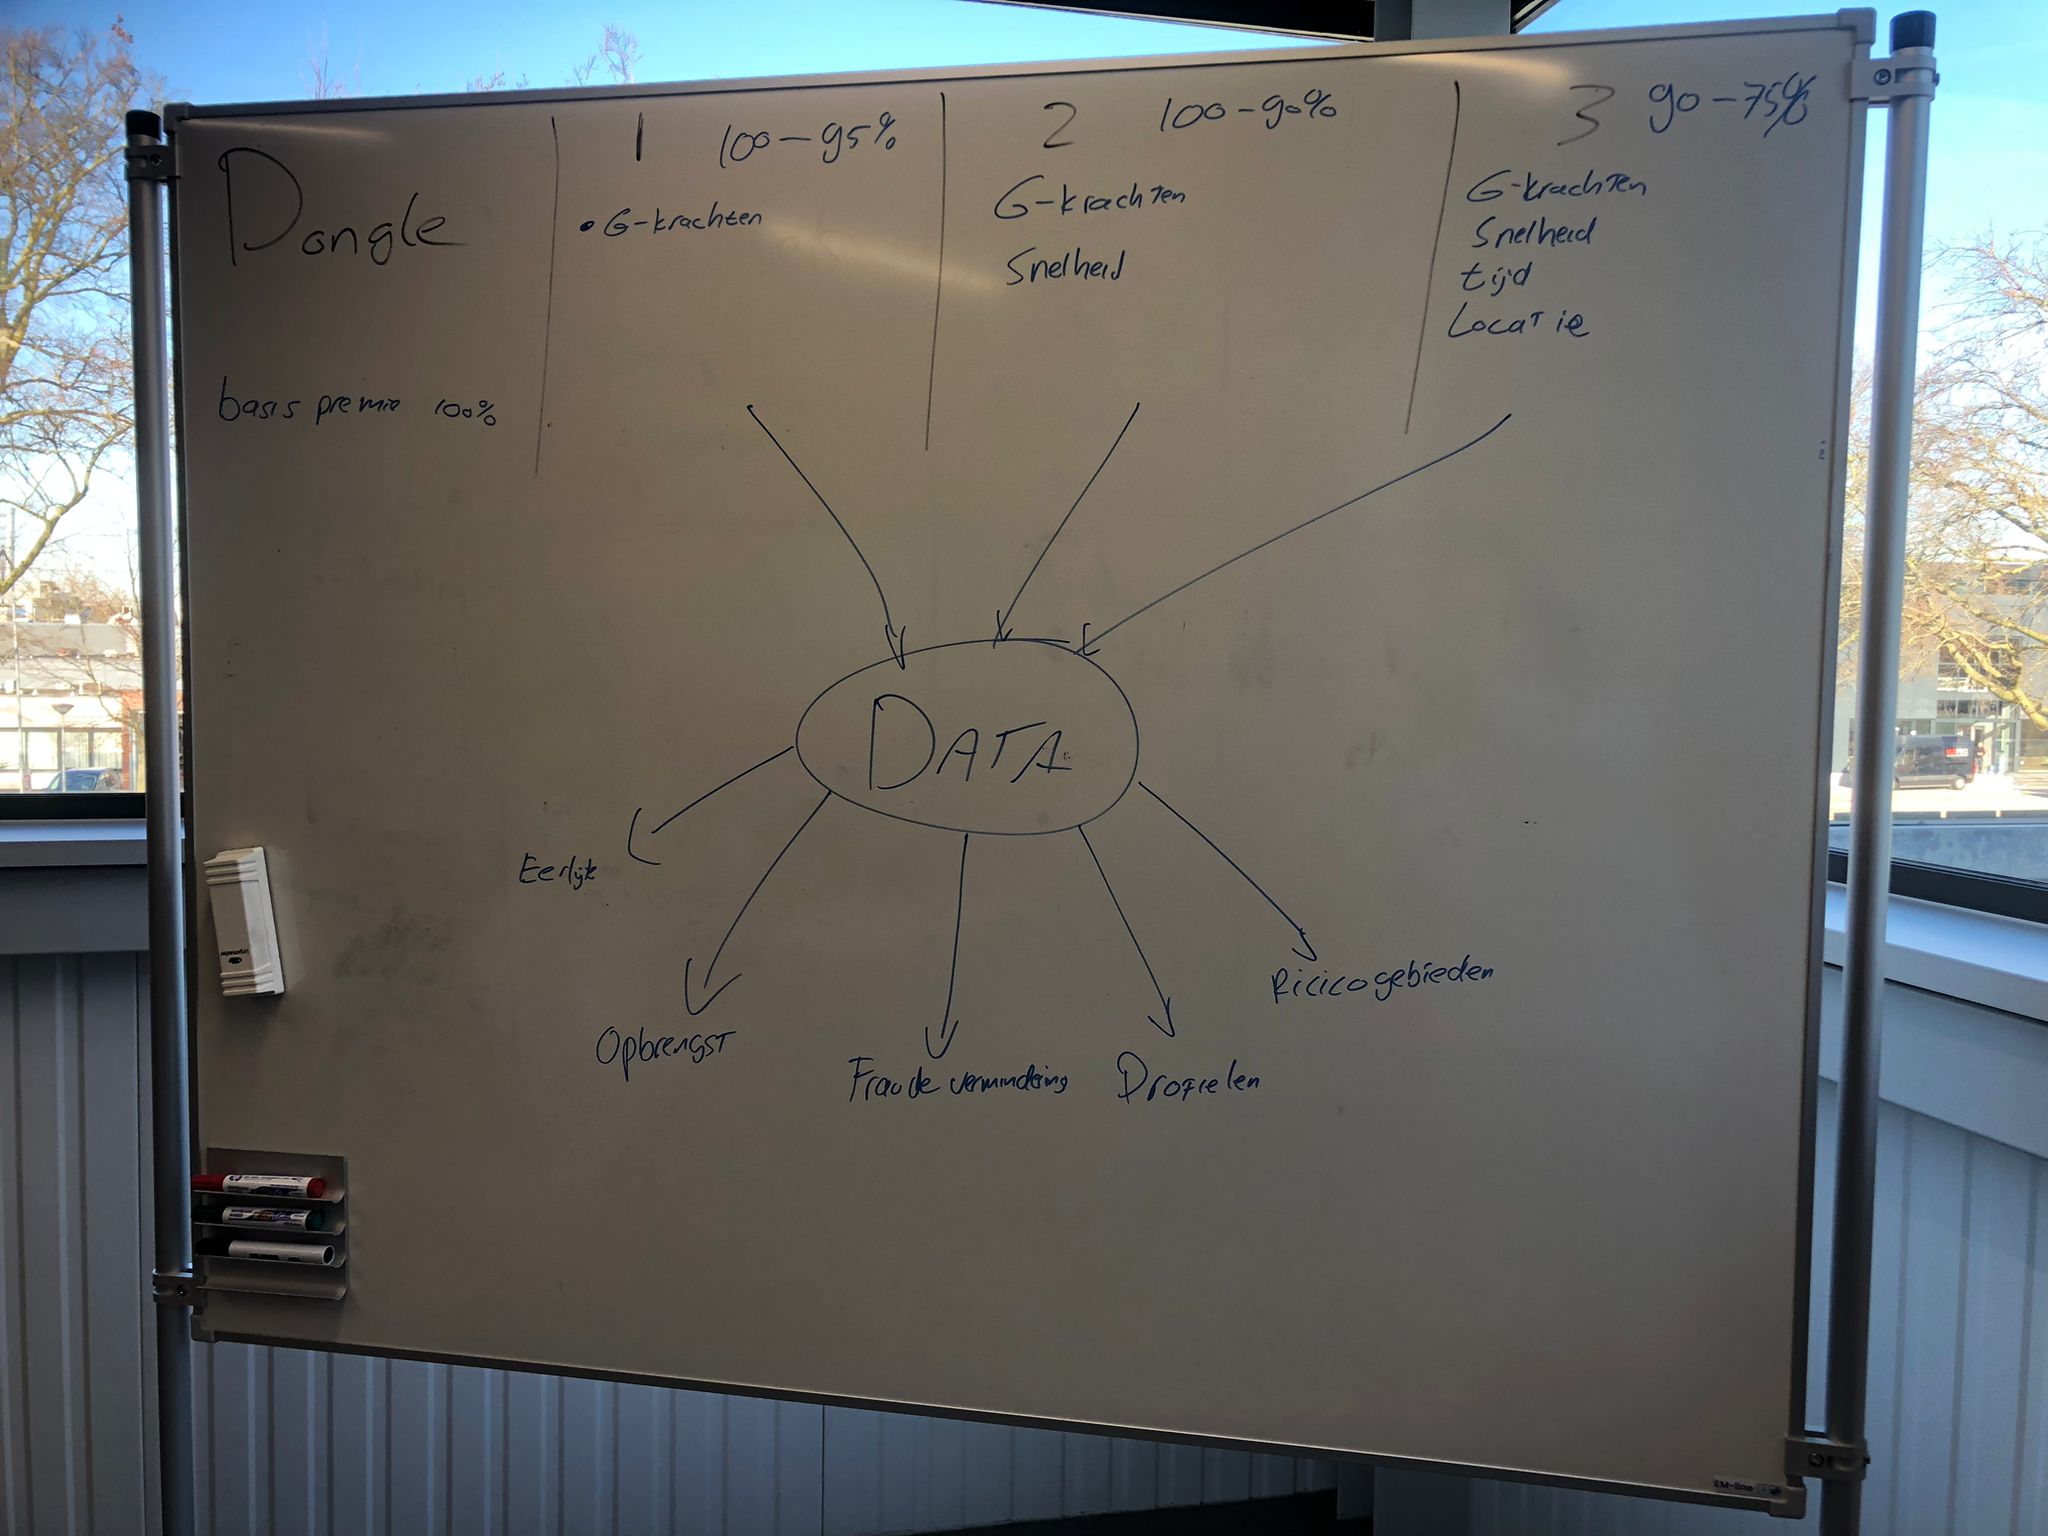 Dongle
basis premie 100%
1 100-95%
• G-krachten
2 100-90%
G-krachten
Snelheid
3 90-75%
G-krachten
Snelheid
tijd
Locatie
DATA
Eerlijk
Opbrengst
Fraude vermindering
Profielen
Ricicogebieden
Legamaster
EM-line